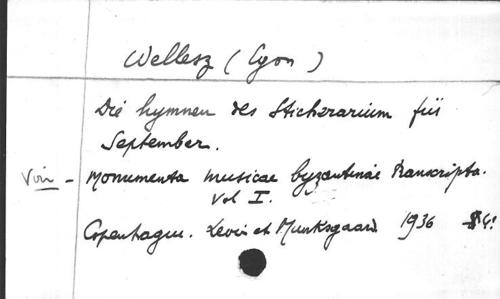 Wellesz (Egon)
Die hymnen des Sticherarium für
September.
Voir - Monumenta musicae byzantinae Transcripta.
Vol I.
Copenhague. Levin et Munksgaard 1936